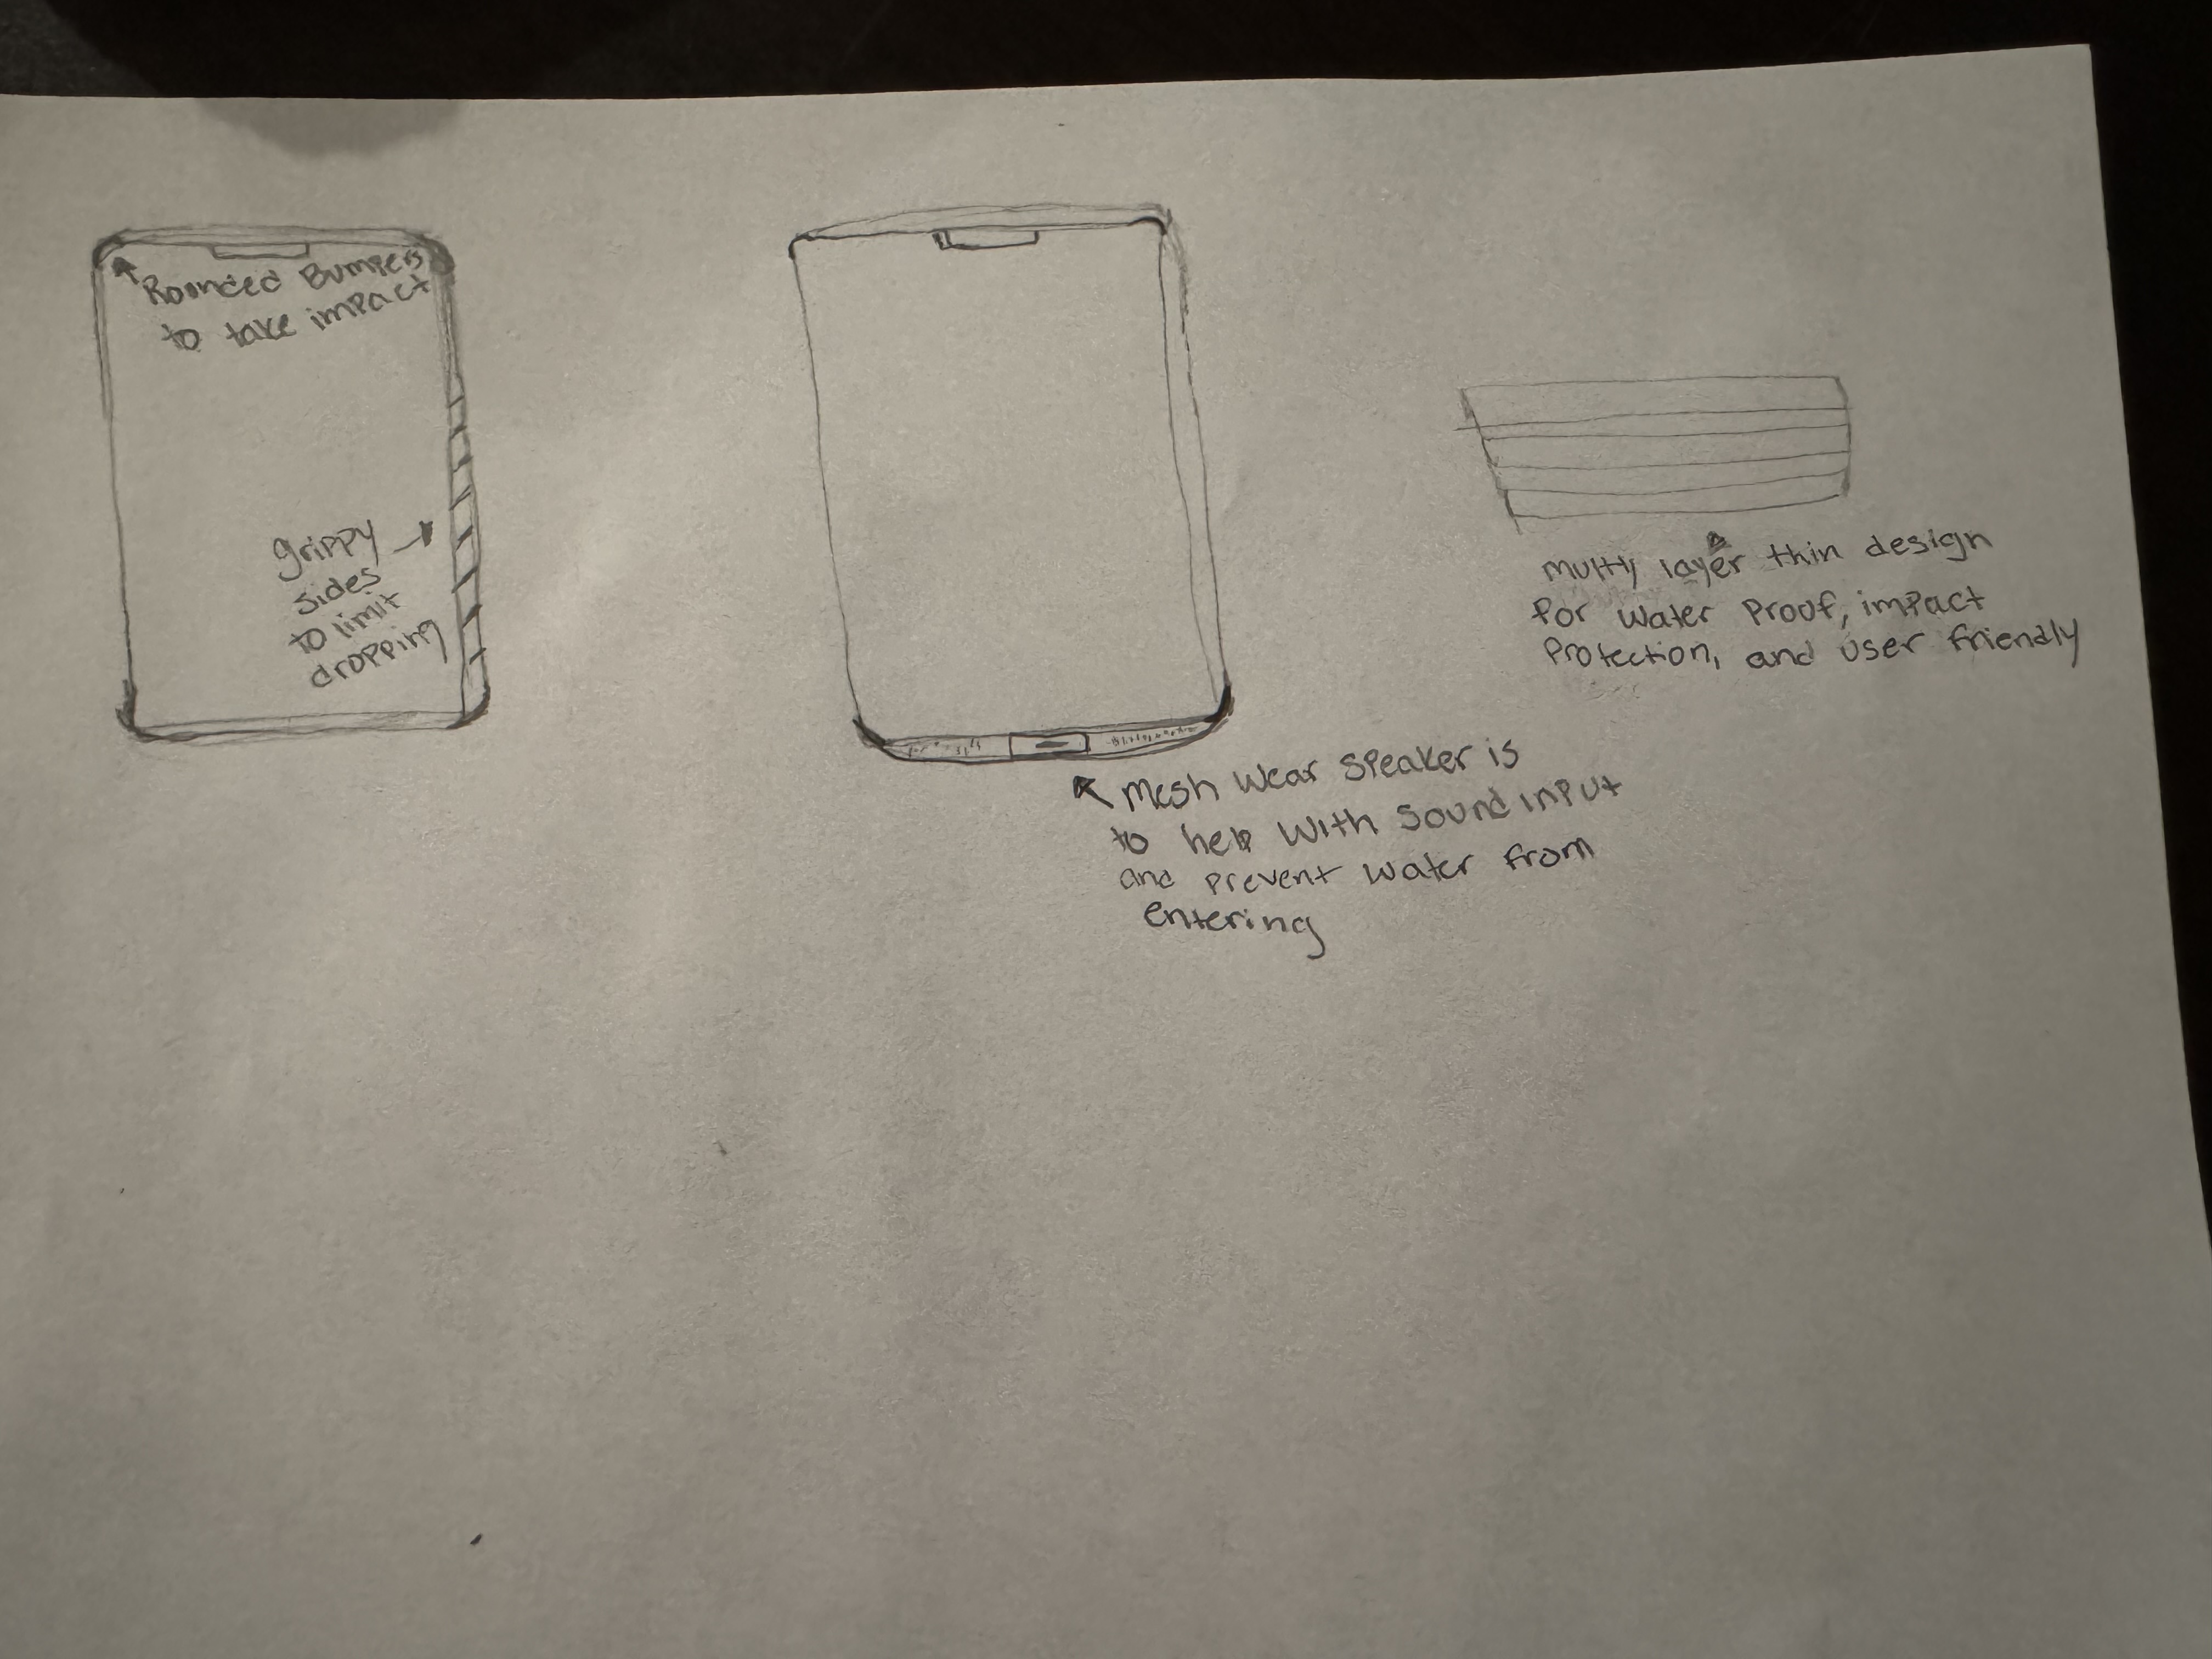 Rounded Bumpers
to take impact
grippy
sides
to limit
dropping
mesh wear speaker is
to help with sound input
and prevent water from
entering
multy layer thin design
for water proof, impact
protection, and user friendly